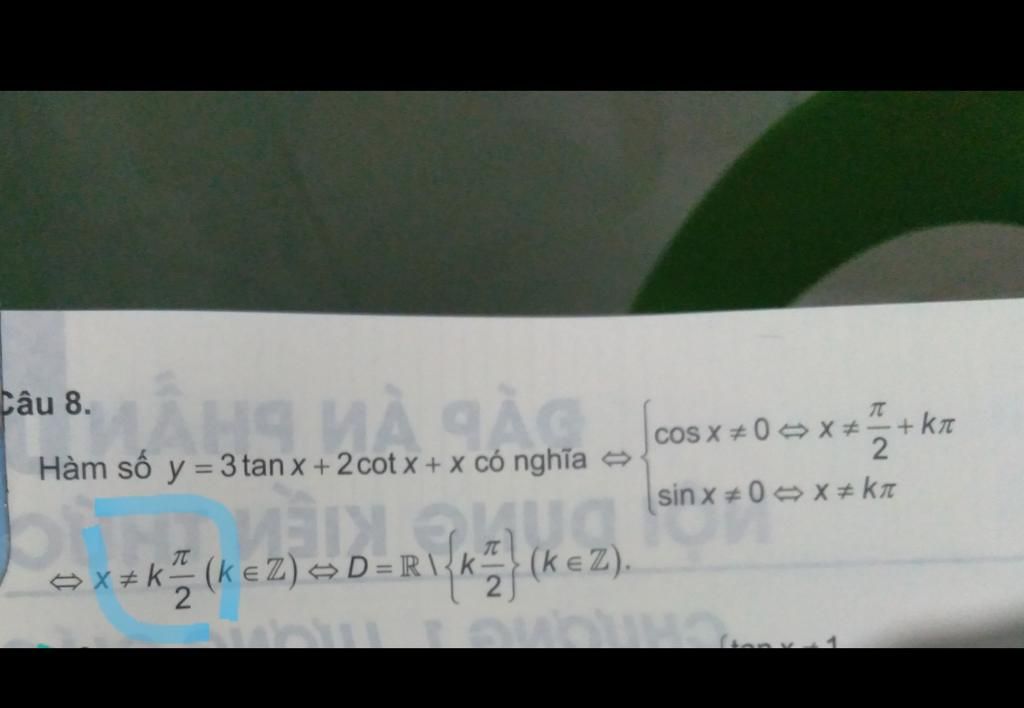 Câu 8.
Hàm số y = 3 tan x + 2 cot x + x có nghĩa ⇔ { cos x ≠ 0 ⇔ x ≠ π/2 + kπ
sin x ≠ 0 ⇔ x ≠ kπ
⇔ x ≠ k π/2 (k ∈ ℤ) ⇔ D = ℝ \ {k π/2} (k ∈ ℤ).